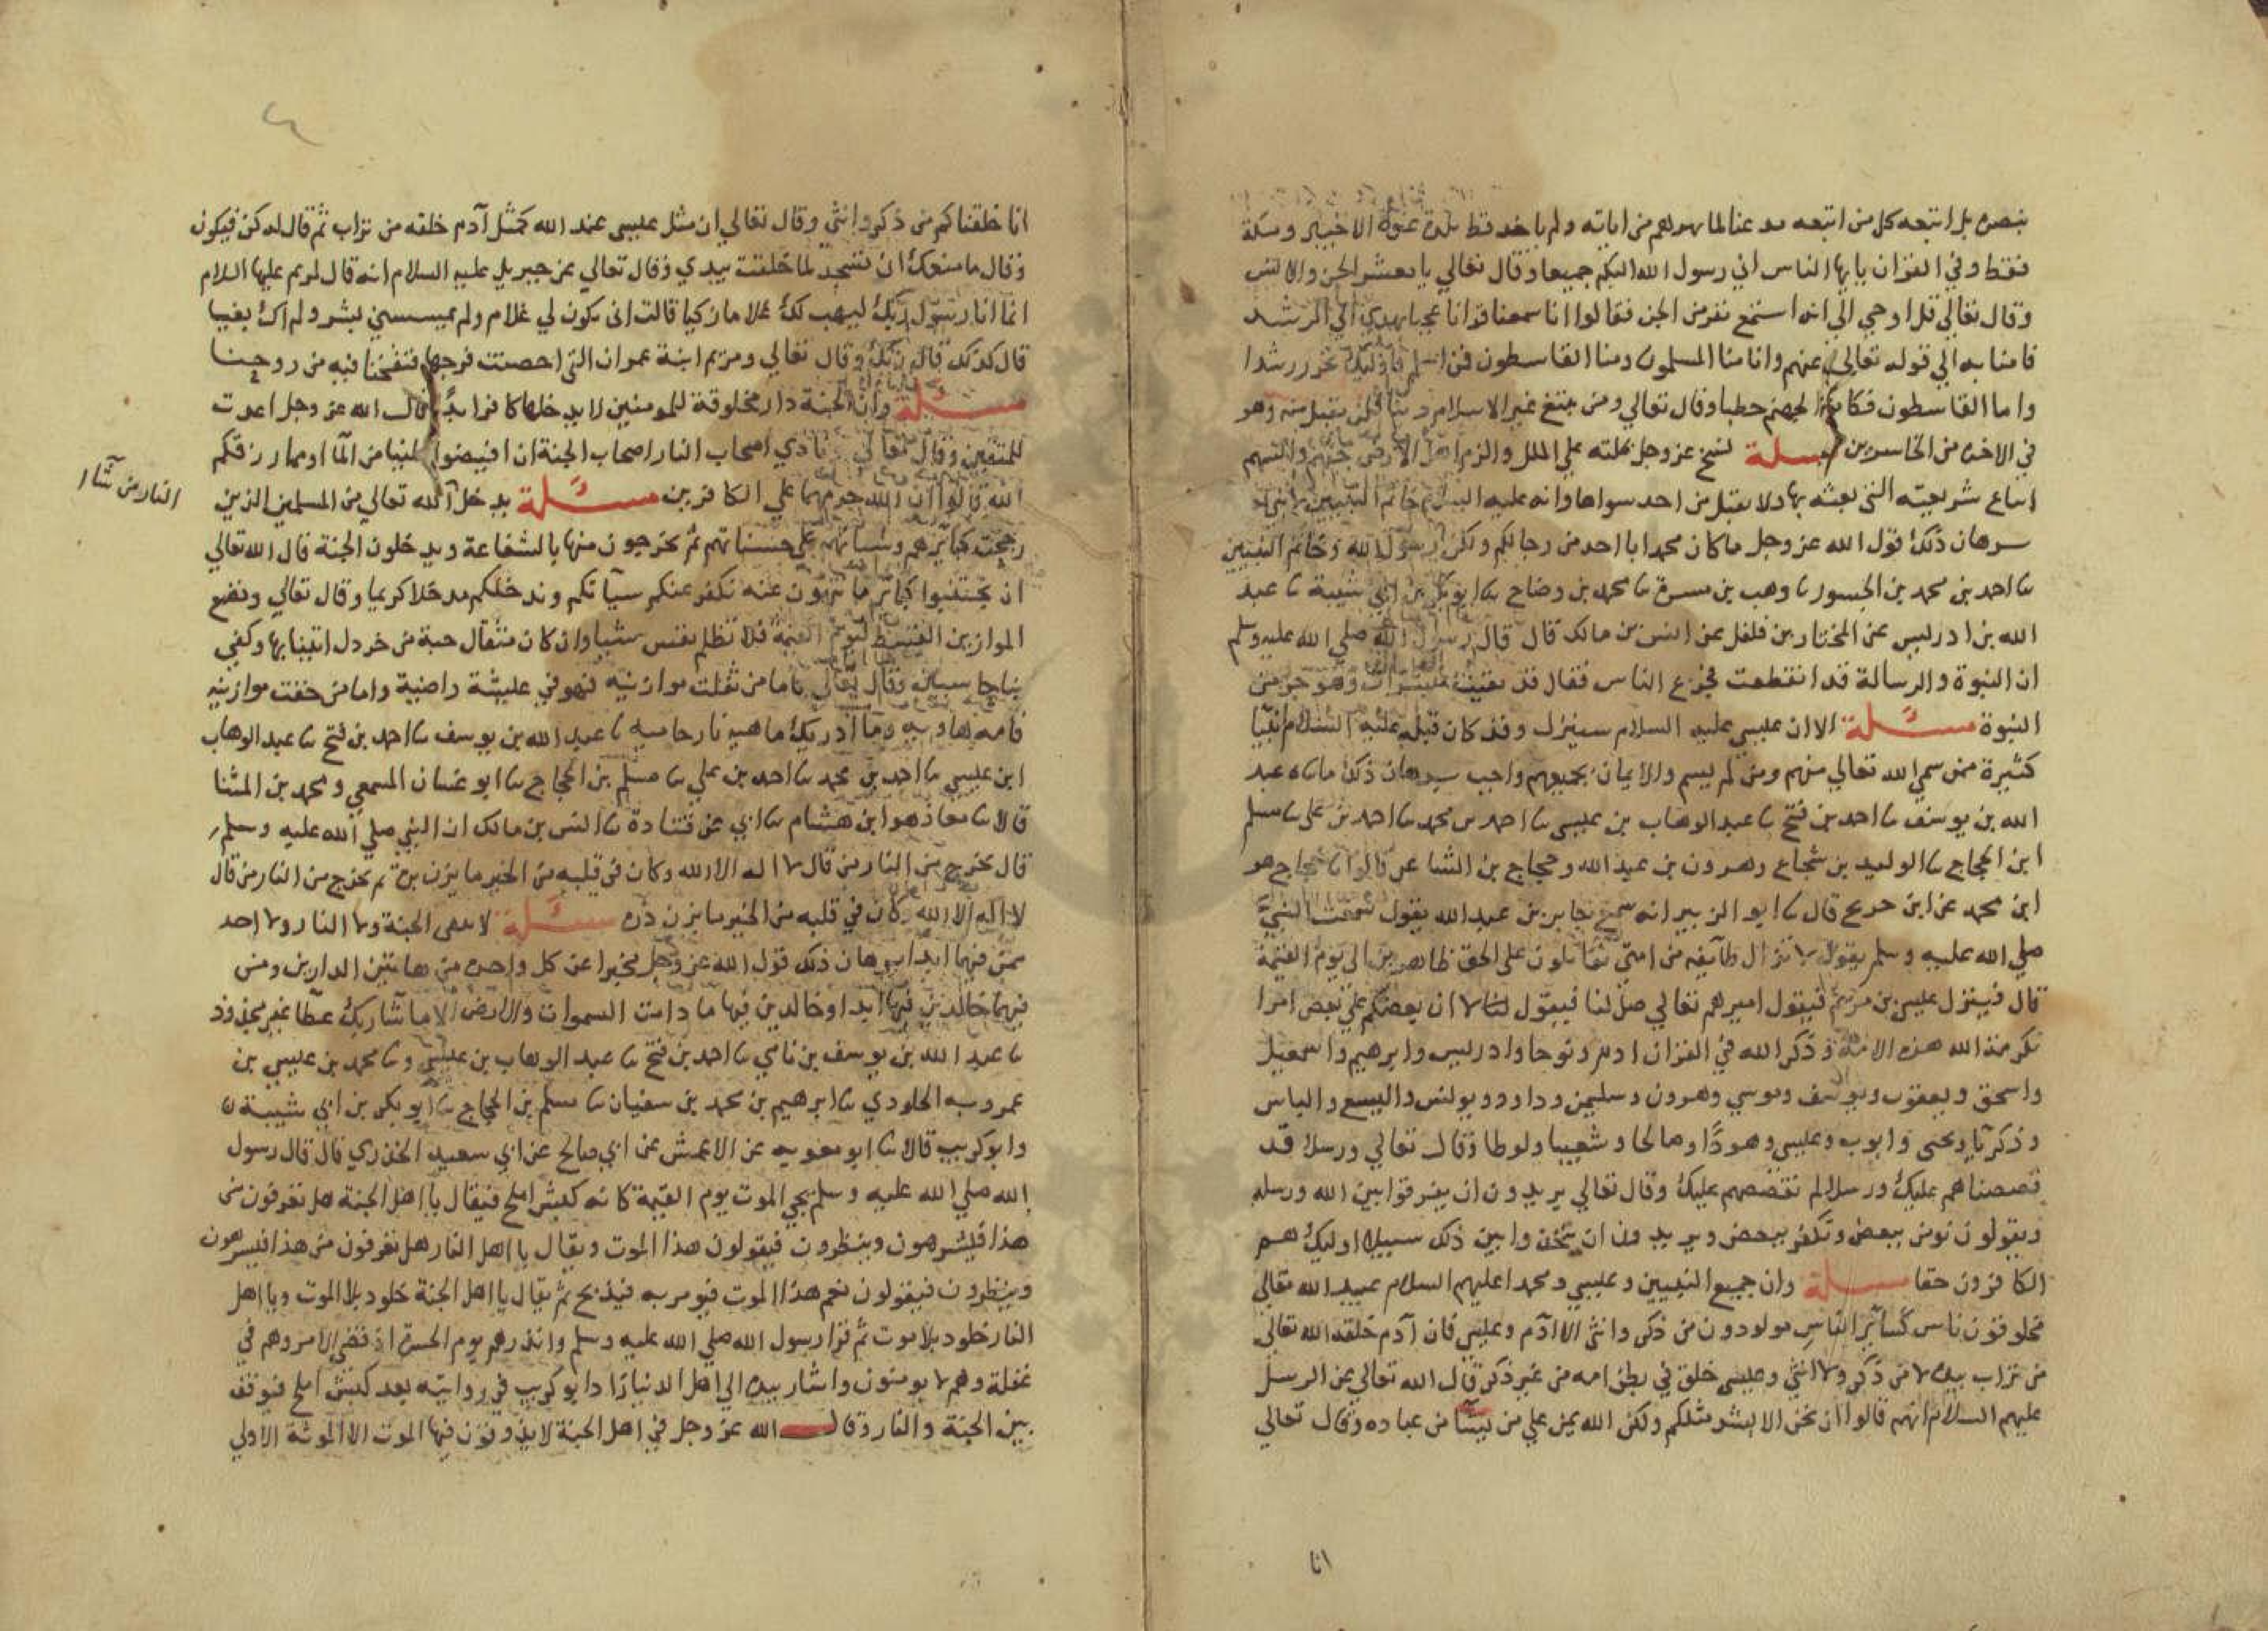 بنصره بل اتبعه كل من اتبعه مدعنا لما بهرهم من اياته ولم ياخذ قط بلدة عنوة الا خيبر ومكة
فقط وفي القران يايها الناس اني رسول الله اليكم جميعا وقال تعالي يا معشر الجن والانس
وقال تعالي قل اوحي الي انه استمع نفر من الجن فقالوا انا سمعنا قرانا عجبا يهدي الي الرشد
فامنا به الي قوله تعالي عنهم وانا منا المسلمون ومنا القاسطون فمن اسلم فاوليك تحروا رشدا
واما القاسطون فكانوا لجهنم حطبا وقال تعالي ومن يبتغ غير الاسلام دينا فلن يقبل منه وهو
في الاخره من الخاسرين مسلة نسخ عز وجل بملته علي الملل والزم اهل الارض جنهم وانسهم
اتباع شريعته التي بعثه بها ولا يقبل من احد سواها وانه عليه السلام خاتم النبيين لا نبي
برهان ذلك قول الله عز وجل ما كان محمد ابا احد من رجالكم ولكن رسول الله وخاتم النبيين
نا احمد بن محمد بن الجسور نا وهب بن مسرة نا محمد بن وضاح نا ابو بكر بن ابي شيبة نا عبد
الله بن ادريس عن المختار بن فلفل عن انس بن مالك قال قال رسول الله صلي الله عليه وسلم
ان النبوة والرسالة قد انقطعت فجزع الناس فقال قد بقيت مبشرات وهو جزء من
النبوة مسئلة الا ان عيسي عليه السلام سينزل وقد كان قبله عليه السلام انبيا
كثيرة ممن سمي الله تعالي منهم ومن لم يسم والايمان بجميعهم واجب برهان ذلك ما نا عبد
الله بن يوسف نا احمد بن فتح نا عبد الوهاب بن عيسي نا احمد بن محمد نا احمد بن علي نا مسلم
ابن الحجاج نا الوليد بن شجاع وهرون بن عبد الله وحجاج بن الشاعر قالوا نا حجاج هو
ابن محمد عن ابن جريج قال نا ابو الزبير انه سمع جابر بن عبد الله يقول سمعت النبي
صلي الله عليه وسلم يقول لا تزال طآيفه من امتي يقاتلون علي الحق ظاهرين الي يوم القيمة
قال فينزل عيسي بن مريم فيقول اميرهم تعالي صل لنا فيقول لا ان بعضكم علي بعض امرا
تكرمة الله هذه الامة وذكر الله في القران ادم ونوحا وادريس وابرهيم واسمعيل
واسحق ويعقوب ويوسف وموسي وهرون وسليمن وداوود ويونس واليسع والياس
وذكريا ويحيى وايوب وعيسي وهودًا وصالحا وشعيبا ولوطا وقال تعالي ورسلا قد
قصصناهم عليك ورسلا لم نقصصهم عليك وقال تعالي يريدون ان يفرقوا بين الله ورسله
ويقولون نومن ببعض ونكفر ببعض ويريدون ان يتخذوا بين ذلك سبيلا اوليك هم
الكافرون حقا مسلة وان جميع النبيين وعيسي ومحمدا عليهم السلام عبيد الله تعالي
مخلوقون ناس كسآئر الناس مولودون من ذكر وانثي الا آدم وعيسي فان آدم خلقه الله تعالي
من تراب بيده لا من ذكر ولا انثي وعيسي خلق في بطن امه من غير ذكر قال الله تعالي عن الرسل
عليهم السلام انهم قالوا ان نحن الا بشر مثلكم ولكن الله يمن علي من يشآ من عباده وقال تعالي
انا
انا خلقناكم من ذكر وانثي وقال تعالي ان مثل عيسي عند الله كمثل آدم خلقه من تراب ثم قال له كن فيكون
وقال ما منعك ان تسجد لما خلقت بيدي وقال تعالي عن جبريل عليه السلام انه قال لمريم عليها السلام
انما انا رسول ربك ليهب لك غلاما زكيا قالت انى يكون لي غلام ولم يمسسني بشر ولم اك بغيا
قال كذلك قال ربك وقال تعالي ومريم ابنة عمران التي احصنت فرجها فنفخنا فيه من روحنا
مسئلة وان الجنة دار مخلوقة للمومنين لا يدخلها كافر ابدًا قال الله عز وجل اعدت
للمتقين وقال تعالي ونادي اصحاب النار اصحاب الجنة ان افيضوا علينا من المآ او مما رزقكم
الله قالوا ان الله حرمهما علي الكافرين مسئلة يدخل الله تعالي من المسلمين الذين
النار من شآ
رجحت كبآئرهم وسياتهم علي حسناتهم ثم يخرجون منها بالشفاعة ويدخلون الجنة قال الله تعالي
ان تجتنبوا كبآئر ما تنهون عنه نكفر عنكم سيآتكم وندخلكم مدخلا كريما وقال تعالي ونضع
الموازين القسط ليوم القيمة فلا تظلم نفس شيا وان كان مثقال حبة من خردل اتينا بها وكفي
بنا حاسبين وقال تعالي فاما من ثقلت موازينه فهو في عيشة راضية واما من خفت موازينه
فامه هاويه وما ادريك ماهيه نار حاميه نا عبد الله بن يوسف نا احمد بن فتح نا عبد الوهاب
ابن عيسي نا احمد بن محمد نا احمد بن علي نا مسلم بن الحجاج نا ابو غسان المسمعي ومحمد بن المثنا
قالا نا معاذ هو ابن هشام نا ابي عن قتادة نا انس بن مالك ان النبي صلي الله عليه وسلم
قال يخرج من النار من قال لا اله الا الله وكان في قلبه من الخير ما يزن برة ثم يخرج من النار من قال
لا اله الا الله وكان في قلبه من الخير ما يزن ذره مسئلة لا تفنى الجنة ولا النار ولا احد
ممن فيهما ابدا برهان ذلك قول الله عز وجل مخبرا عن كل واحده من هاتين الدارين ومن
فيهما خالدين فيها ابدا وخالدين فيها ما دامت السموات والارض الا ما شآ ربك عطآ غير مجذوذ
نا عبد الله بن يوسف بن نامي نا احمد بن فتح نا عبد الوهاب بن عيسي نا محمد بن عيسي بن
عمرويه الجلودي نا ابرهيم بن محمد بن سفيان نا مسلم بن الحجاج نا ابو بكر بن ابي شيبة
وابو كريب قالا نا ابو معويه عن الاعمش عن ابي صالح عن ابي سعيد الخدري قال قال رسول
الله صلي الله عليه وسلم يجي الموت يوم القيمة كانه كبش املح فيقال يا اهل الجنة هل تعرفون
هذا فيشرهبون وينظرون فيقولون هذا الموت ويقال يا اهل النار هل تعرفون من هذا فيشرهبون
وينظرون فيقولون نعم هذا الموت فيومر به فيذبح ثم يقال يا اهل الجنة خلود بلا الموت ويا اهل
النار خلود بلا موت ثم قرا رسول الله صلي الله عليه وسلم وانذرهم يوم الحسرة اذ قضي الامر وهم في
غفلة وهم لا يومنون واشار بيده الي اهل الدنيا زاد ابو كريب في روايته بعد كبش املح فيوقف
بين الجنة والنار وقال الله عز وجل في اهل الجنة لا يذوقون فيها الموت الا الموتة الاولي